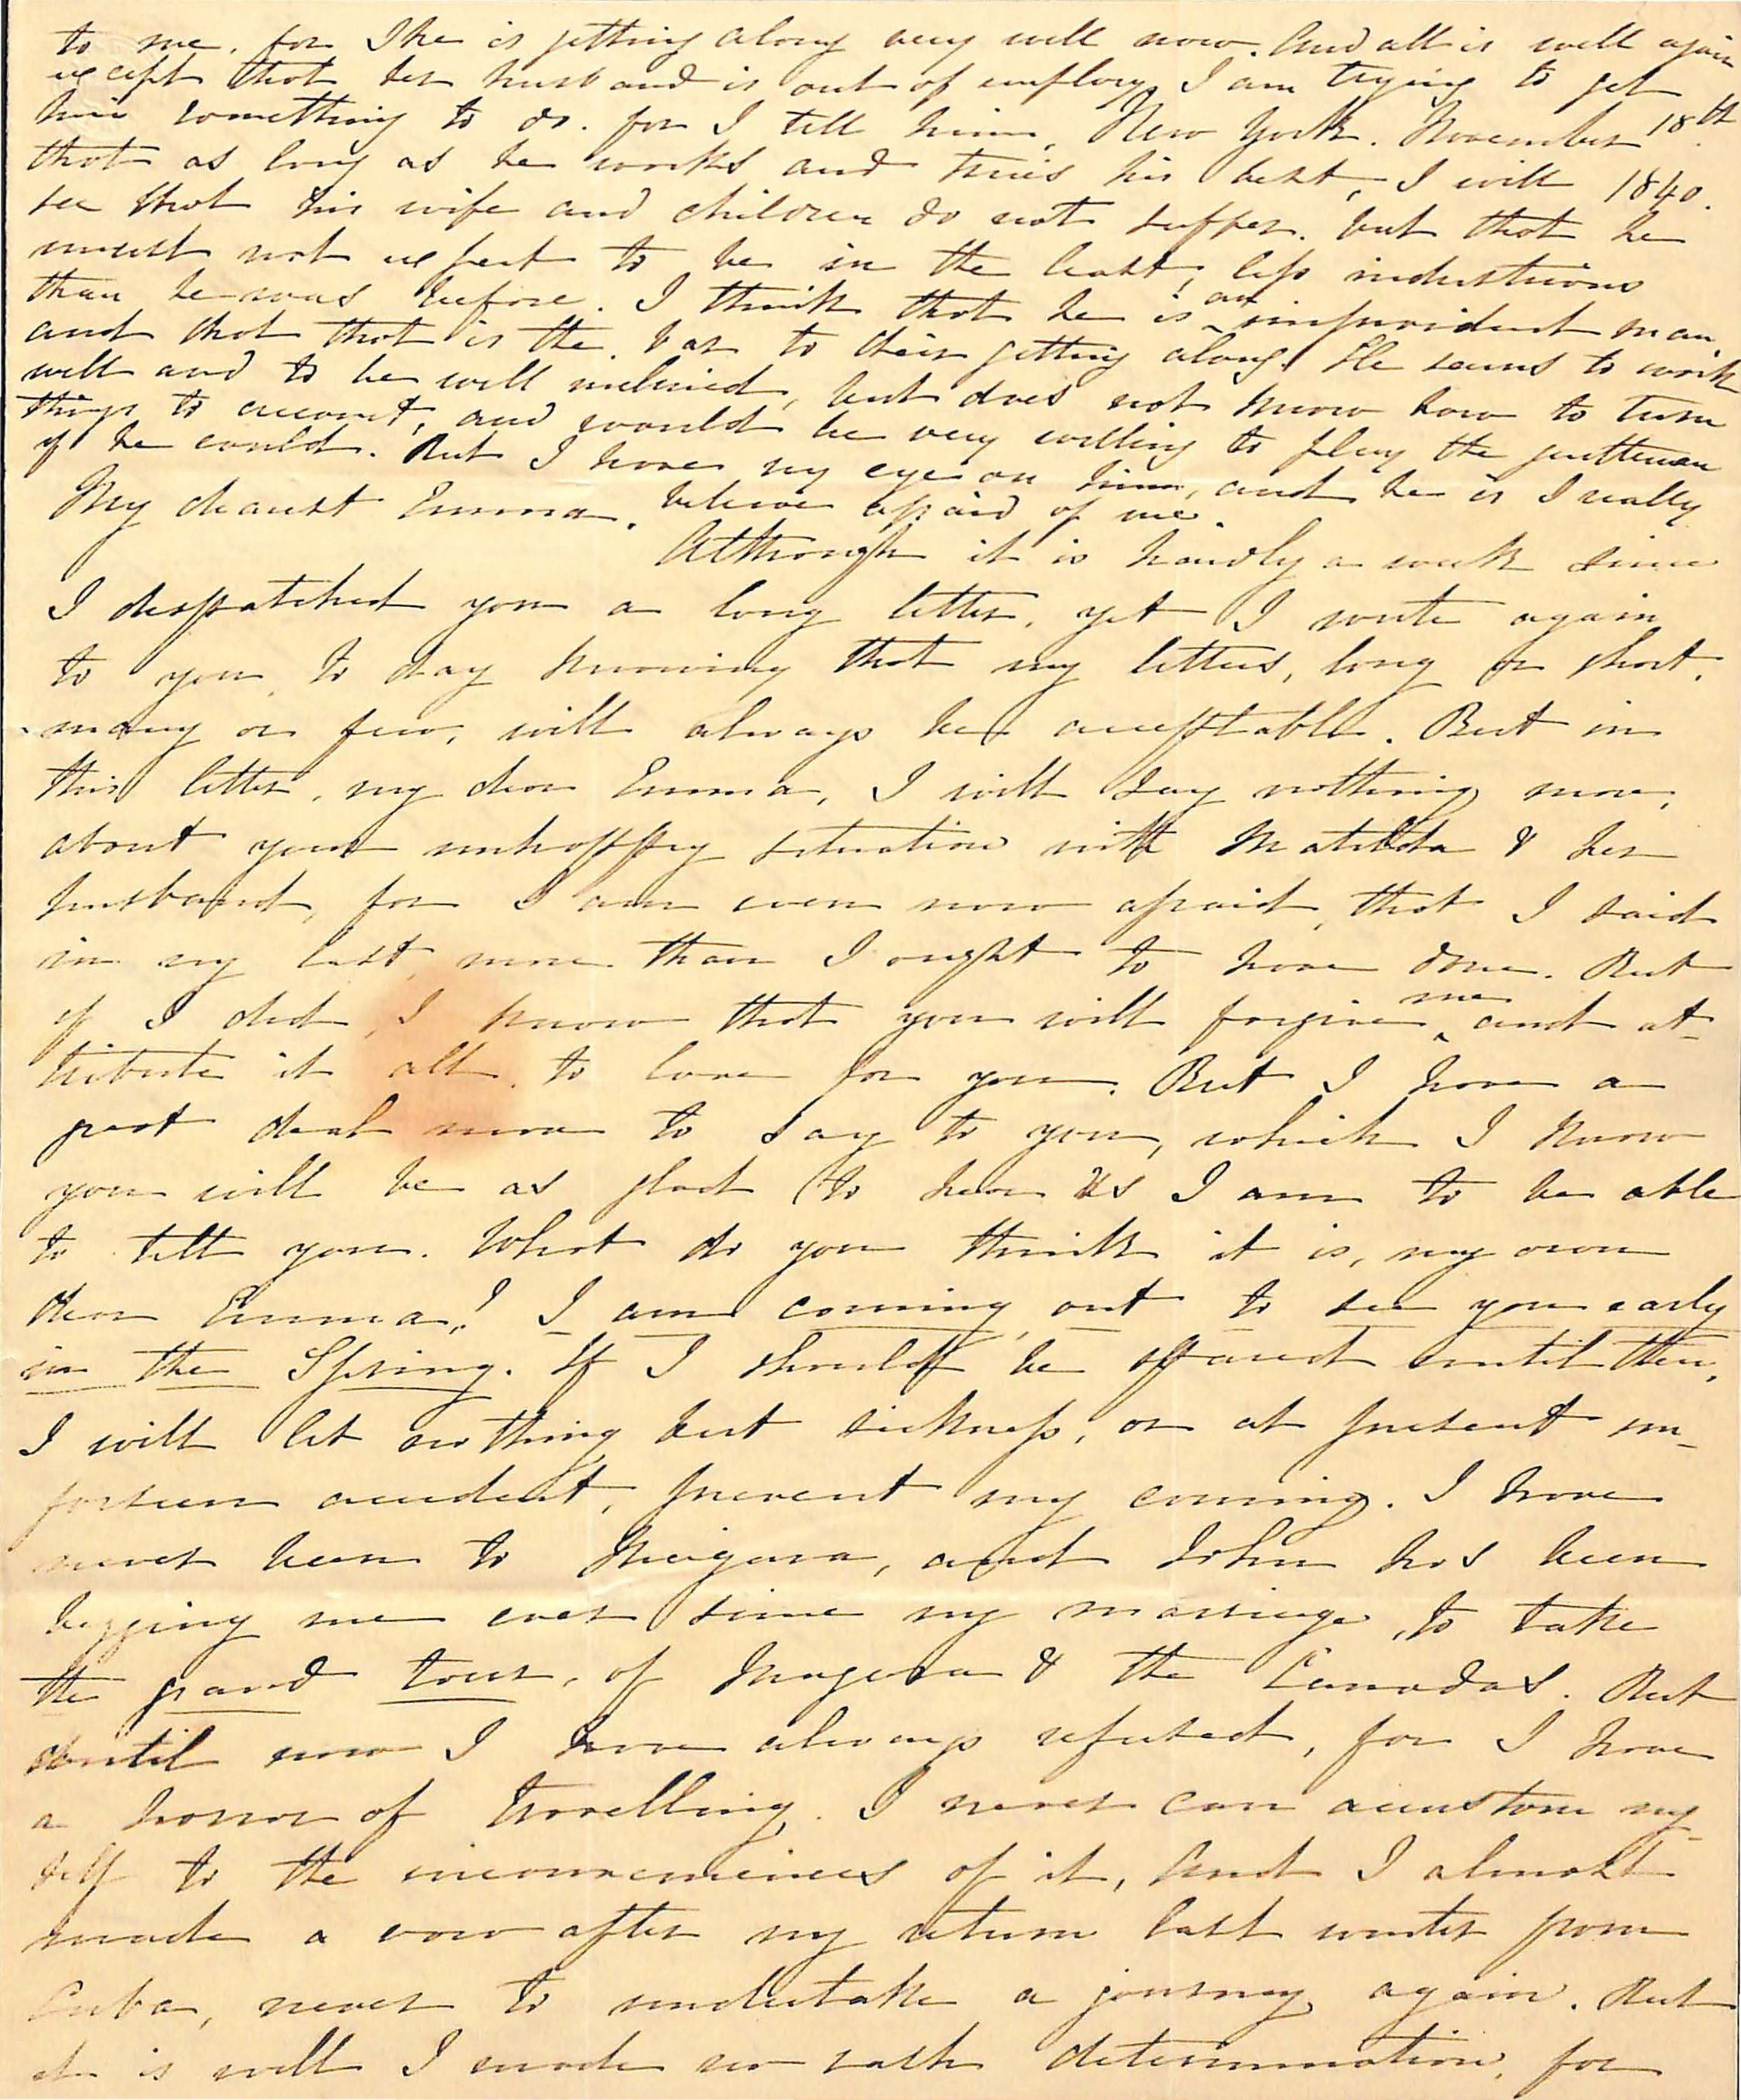 to me. for She is getting along very well now. And all is well again
except that her husband is out of employ. I am trying to get
him something to do. for I tell him, New York. November 18th
that as long as he works and tries his best, I will 1840.
see that his wife and children do not suffer. but that he
must not expect to be in the least, less industrious
than he was before. I think that he is an improvident man,
and that that is the bar to their getting along. He seems to work
well and to be well inclined, but does not know how to turn
things to account, and would be very willing to play the gentleman
if he could. But I have my eye on him, and he is I really
My dearest Emma. believe afraid of me.
Although it is hardly a week since
I despatched you a long letter, yet I write again
to you, to day knowing that my letters, long or short,
many or few, will always be acceptable. But in
this letter, my dear Emma, I will say nothing more,
about your unhappy situation with Matilda & her
husband, for I am even now afraid, that I said
in my last, more than I ought to have done. But
if I did, I know that you will forgive me and at-
tribute it all to love for you. But I have a
great deal more to say to you, which I know
you will be as glad to hear as I am to be able
to tell you. What do you think it is, my own
dear Emma,! I am coming out to see you early
in the Spring. If I should be spared until then,
I will let nothing but sickness, or at present un-
forseen accident, prevent my coming. I have
never been to Niagara, and John has been
begging me ever since my marriage, to take
the grand tour, of Niagara & the Canadas. But
until now I have always refused, for I have
a horror of travelling. I never can accustom my-
self to the inconveniences of it, and I almost
made a vow after my return last winter from
Cuba, never to undertake a journey again. But
it is well I made no rash determination, for